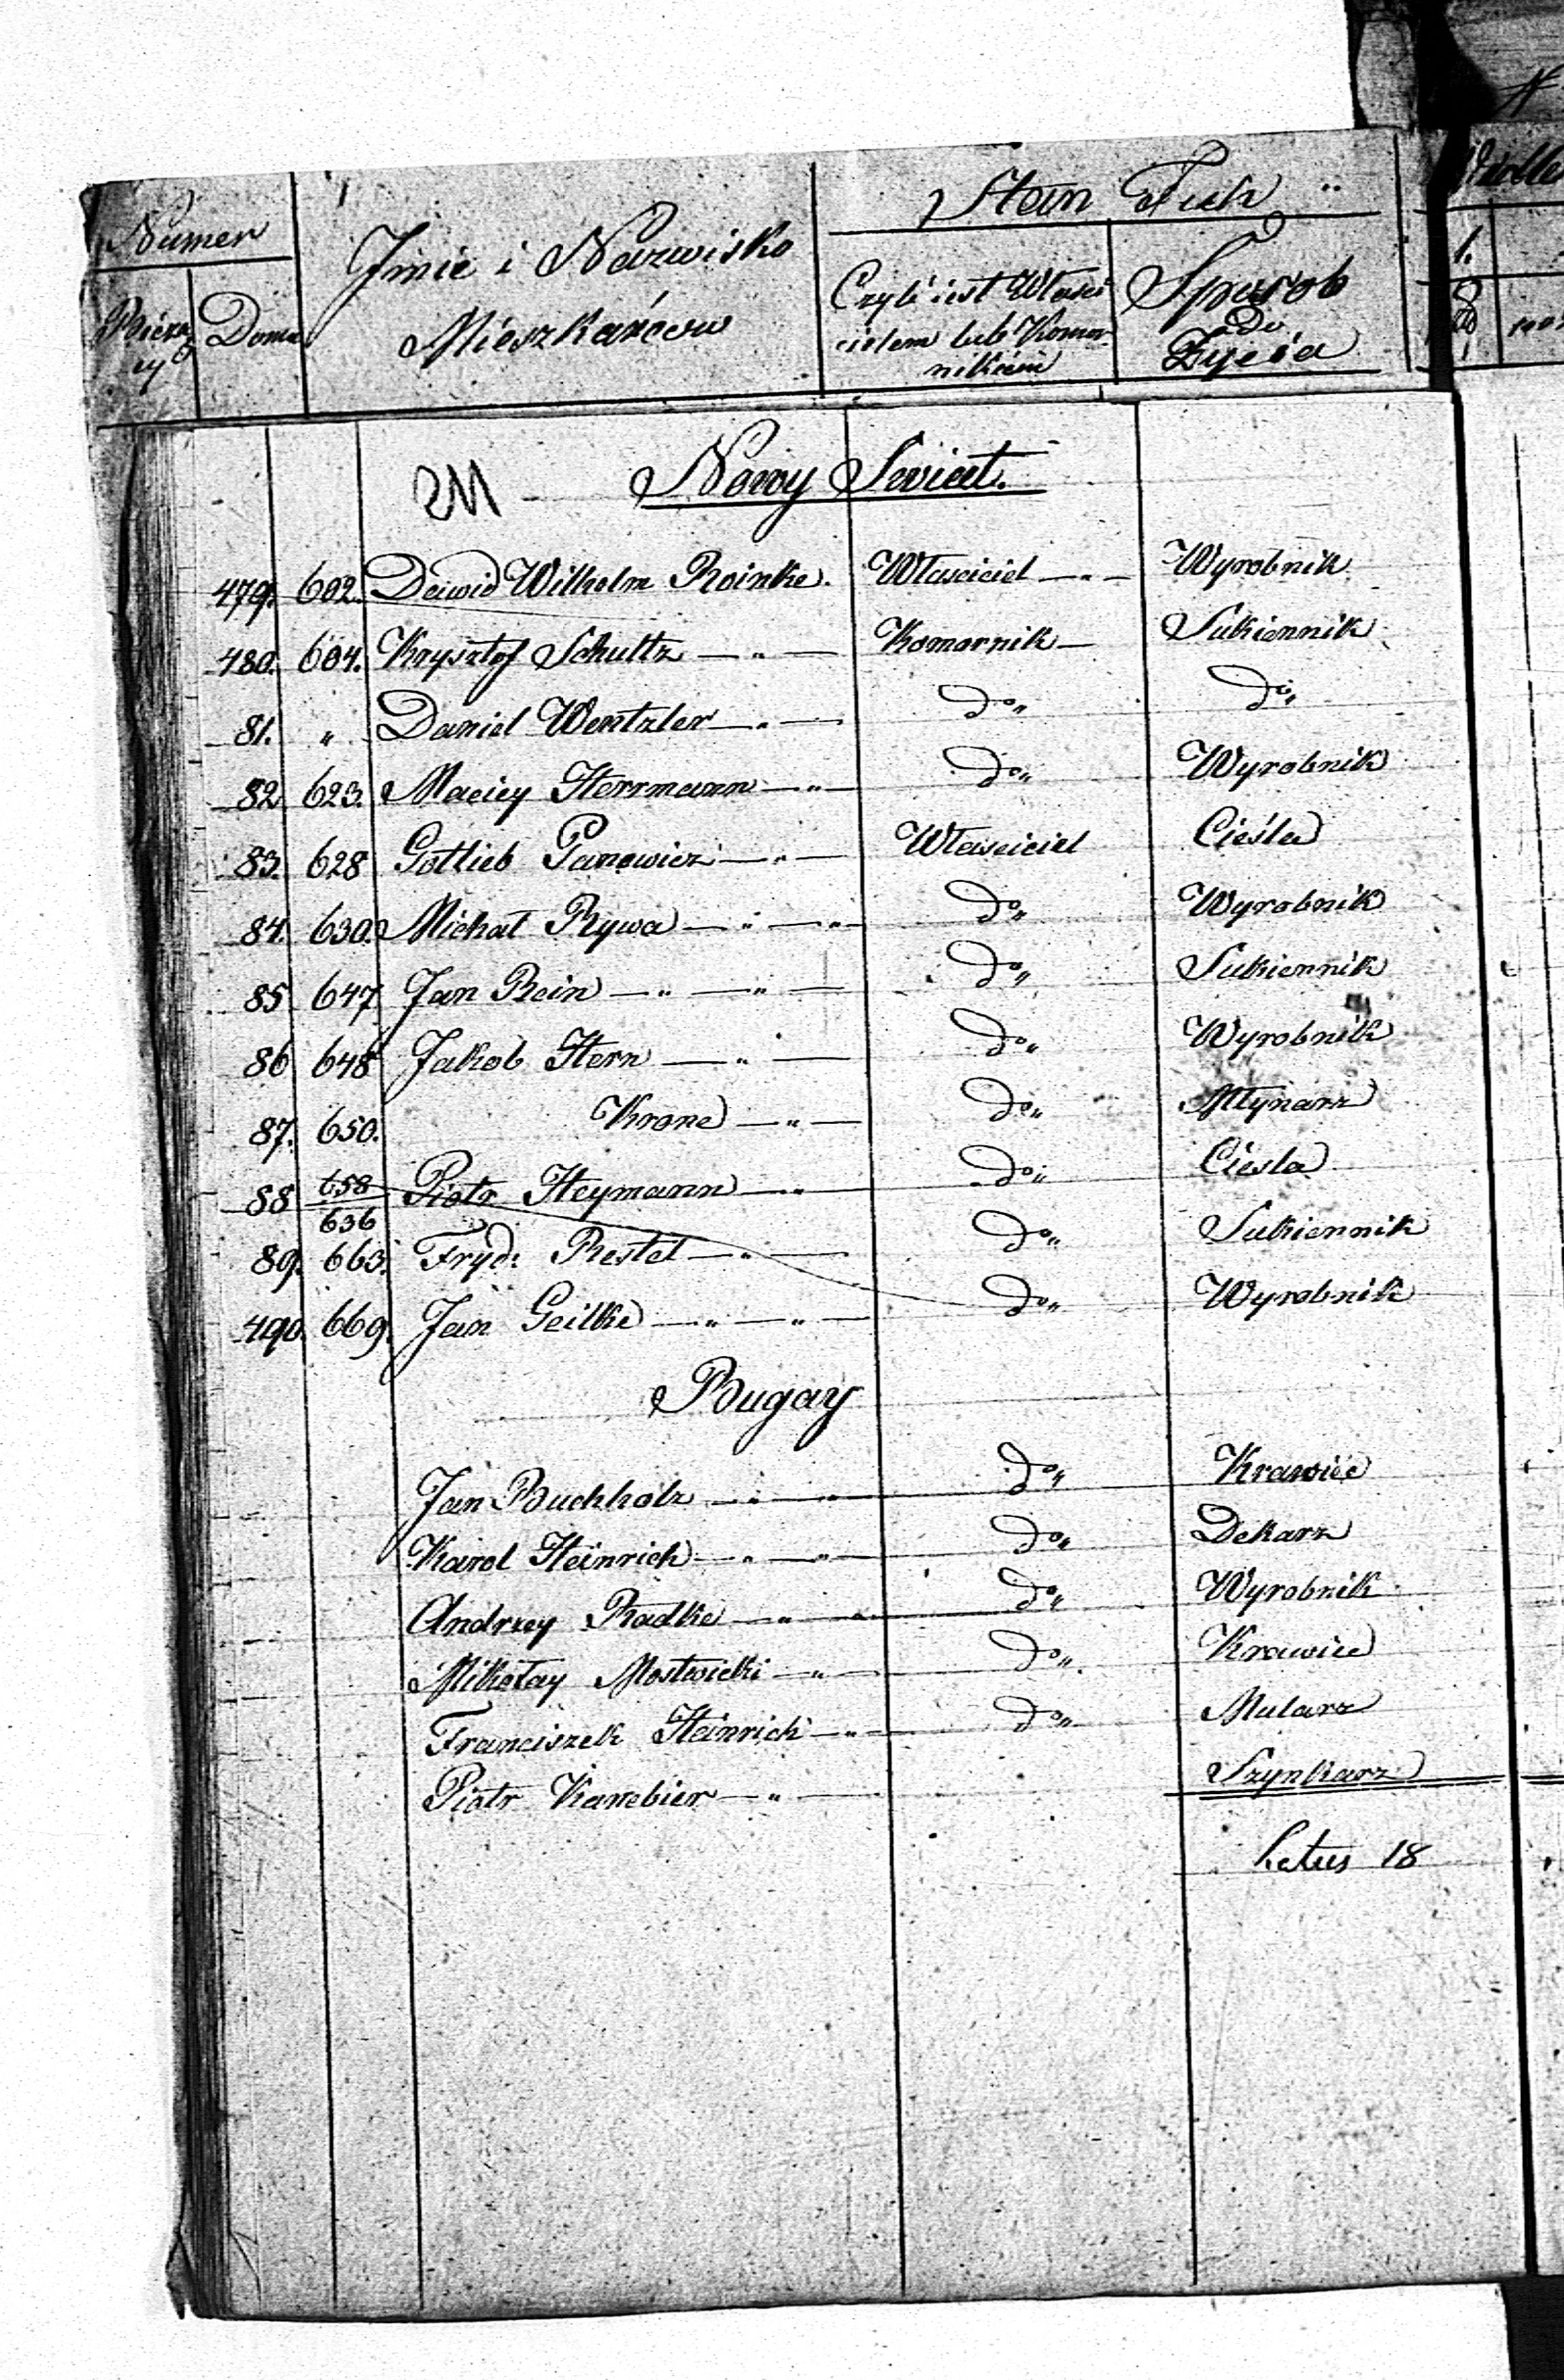 Numer
Bieżą
cy
Domu
Jmie i Nazwisko
Mieszkańców
Stan Tych
Czyli iest Właści
cielem lub Komor
nikiem
Sposob
do
Życia
1.
Nowy Swiat.
479. 602. Dawid Wilhelm Reinke. Właściciel —„— Wyrobnik
480. 604. Krysztof Schultz —„— Komornik — Sukiennik
81. „ Daniel Wentzler —„— do„ do„
82 623. Maciey Herrmann —„— do„ Wyrobnik
83. 628 Gottlieb Panowicz —„— Właściciel Cieśla
84. 630. Michał Rywa —„—„— do„ Wyrobnik
85 647 Jan Rein —„—„— do„ Sukiennik
86 648 Jakob Stern —„— do„ Wyrobnik
87. 650. Krone —„— do„ Młynarz
88 658/636 Piotr Heymann —„ do„ Ciesla
89. 663. Fryd: Restel —„— do„ Sukiennik
490 669. Jan Geilke —„—„— do„ Wyrobnik
Bugay
Jan Buchholz —„—„— do„ Krawiec
Karol Heinrich —„—„— do„ Dekarz
Andrzey Radke —„— do„ Wyrobnik
Mikołay Mostwicki —„— do„ Krawiec
Franciszek Heinrich —„— do„ Mularz
Piotr Kanebier —„— Szynkarz
Latus 18